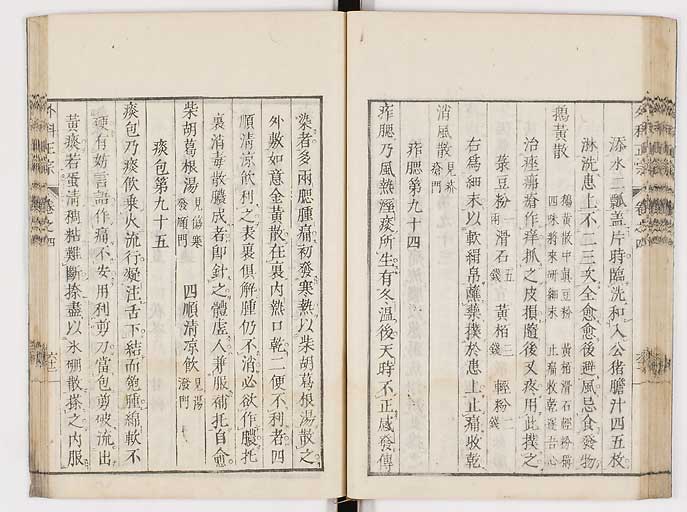 添水二瓢盖片時臨洗和入公猪膽汁四五枚
淋洗患上不二三次全愈愈後避風忌食發物
鵝黃散
鵝黃散中眞豆粉 黃柏滑石輕粉稱
四味將來研細末 止痛收乾逐苦心
治痤痱瘡作痒抓之皮損隨後又疼用此撲之
菉豆粉一兩 滑石五錢 黃柏三錢 輕粉二錢
右爲細末以軟絹帛蘸藥撲於患上止痛收乾
消風散見疥瘡門
痄腮第九十四
痄腮乃風熱溼痰所生有冬溫後天時不正感發傳
染者多兩腮腫痛初發寒熱以柴胡葛根湯散之
外敷如意金黃散在裏內熱口乾二便不利者四
順清凉飮利之表裏俱解腫仍不消必欲作膿托
裏消毒散膿成者卽針之體虛人兼服補托自愈
柴胡葛根湯見傷寒發頤門 四順清凉飮見湯潑門
痰包第九十五
痰包乃痰飮乘火流行凝注舌下結而匏腫綿軟不
硬有妨言語作痛不安用利剪刀當包剪破流出
黃痰若蛋清稠粘難斷捺盡以氷硼散搽之內服
外科正宗 卷之四